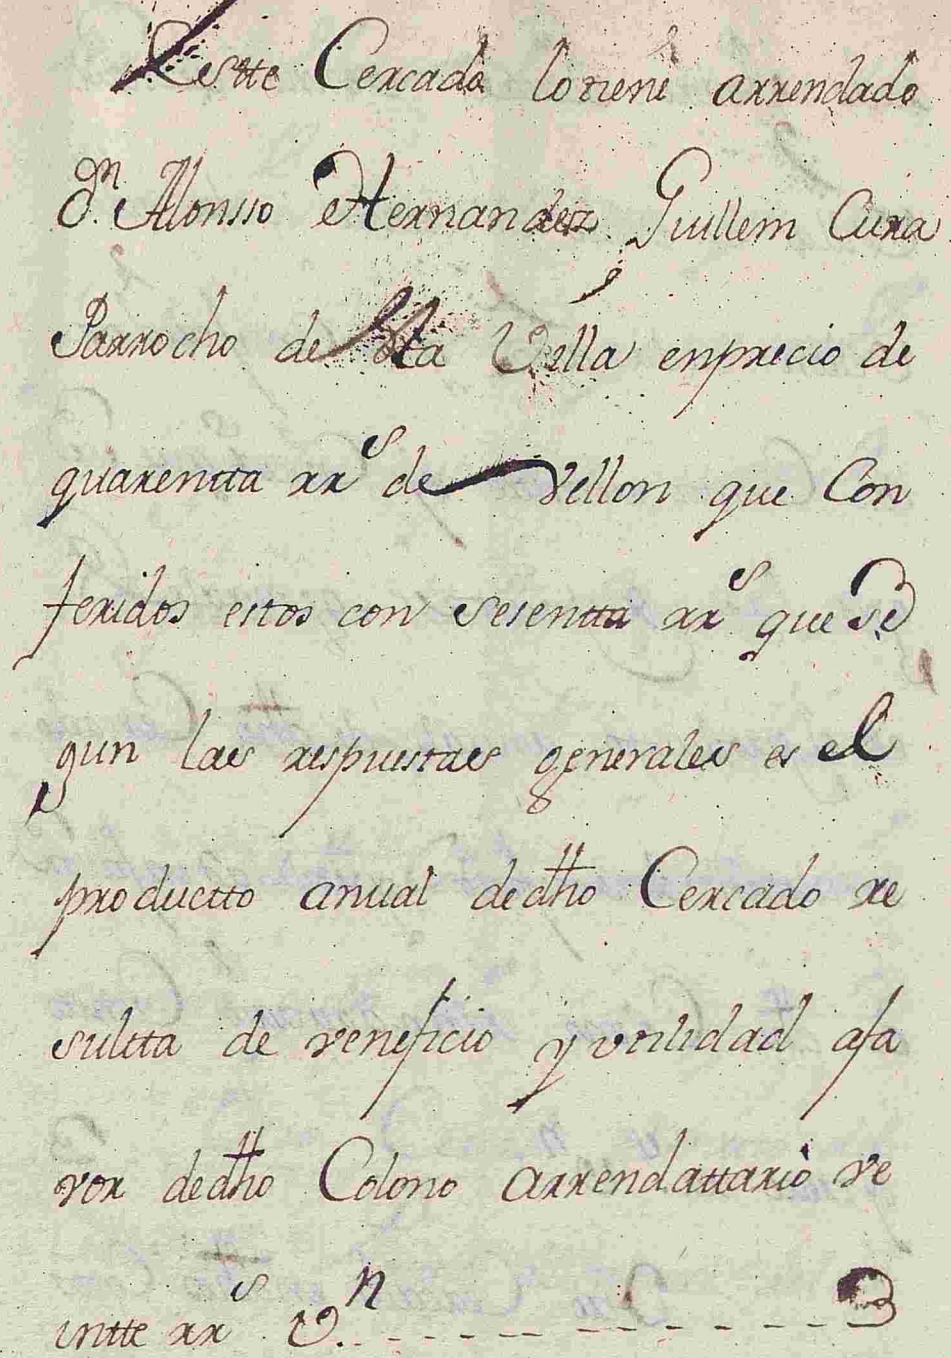 Estte Cercado lo tiene arrendado
Dn. Alonsso Hernandez Guillem Cura
Parrocho de esta Villa enprecio de
quarentta rrs de Vellon que Con
feridos estos con sesentta rrs que se
gun las respuestas generales es el
productto anual de dho Cercado re
sultta de veneficio y vtilidad afa
vor de dho Colono arrendattario ve
intte rrs Vn.